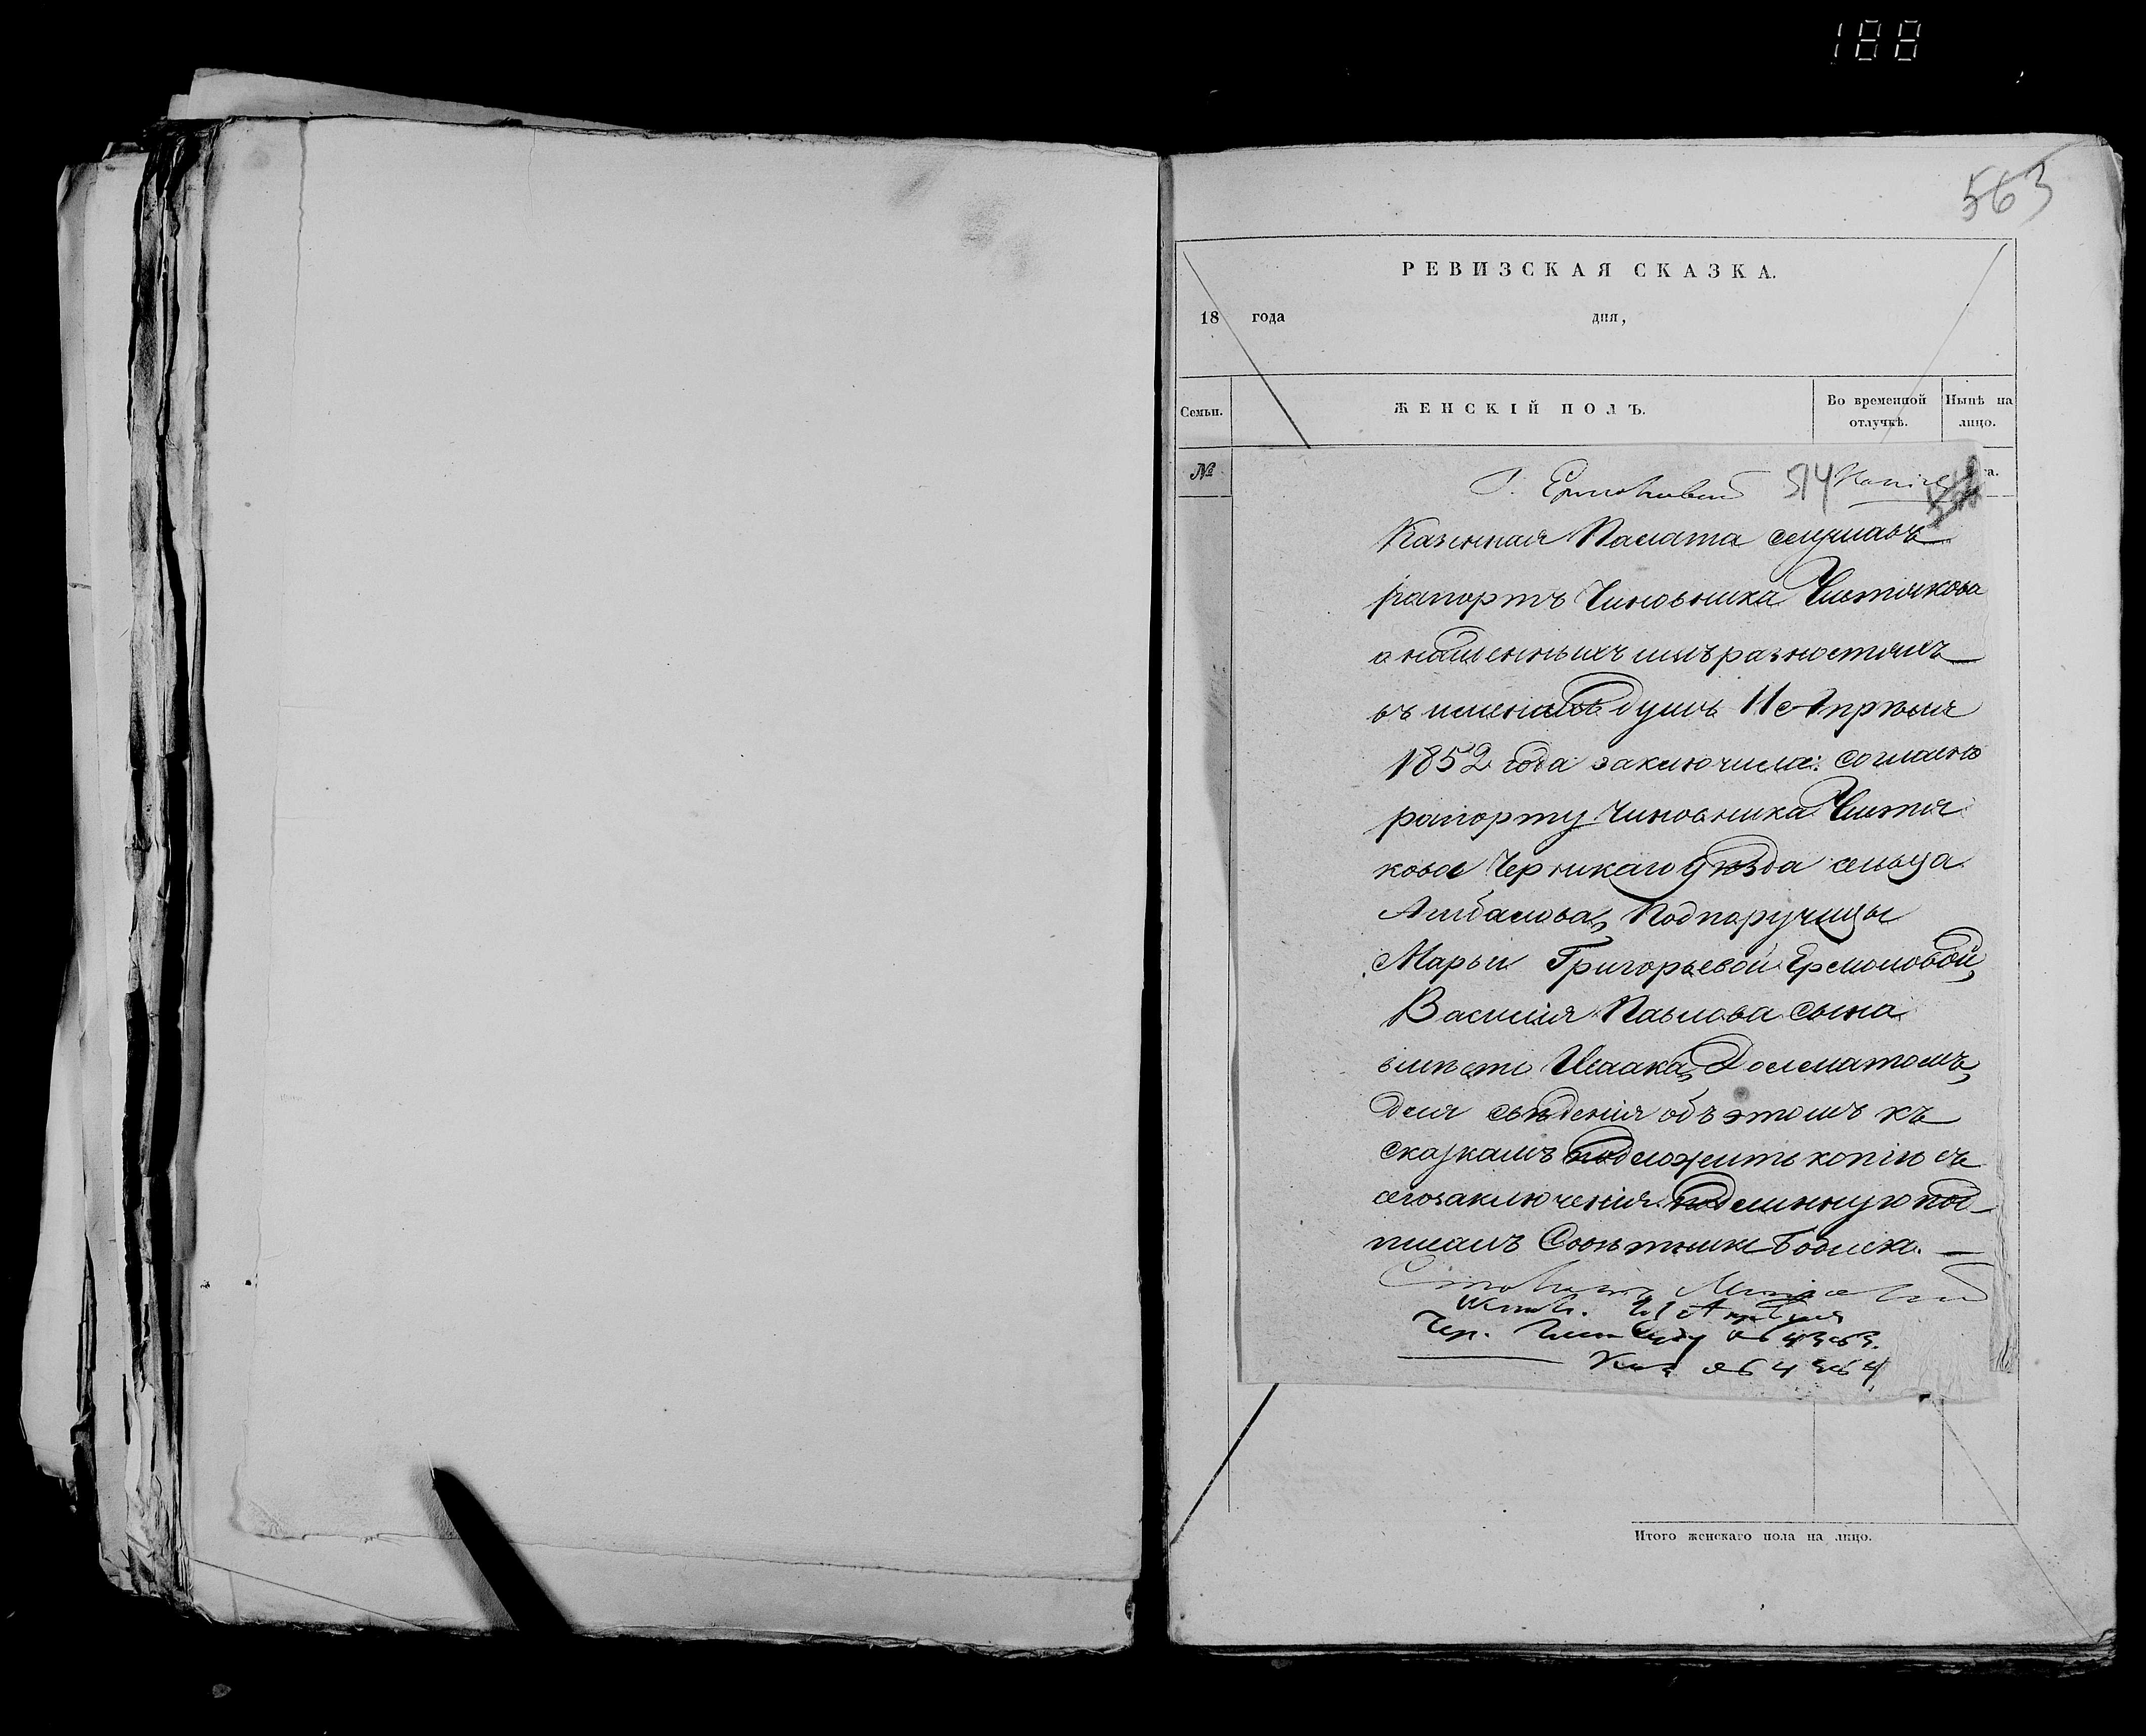 188
563
РЕВИЗСКАЯ СКАЗКА.
18 года дня,
Семьи. ЖЕНСКІЙ ПОЛЪ. Во временной отлучкѣ. Нынѣ на лицо.
№ та.
Г. Ермоловой 514 Копія
Казенная Палата слушавъ
рапортъ Чиновника Чистякова
о найденныхъ имъ разностяхъ
въ именахъ душъ 11 Апрѣля
1852 года заключила: согласно
рапорту Чиновника Чистя
кова Чернскаго Уѣзда сельца
Подпоручицы
Марьи Григорьевой Ермоловой,
Василія Павлова сына
вмѣсто Исаака, Долматомъ,
для свѣденія объ этомъ къ
сказкамъ подложить копію съ
сего заключенія подлинную под-
писалъ Совѣтникъ
Апрѣля
Чер. № 4363.
Каз № 4364
Итого женскаго пола на лицо.